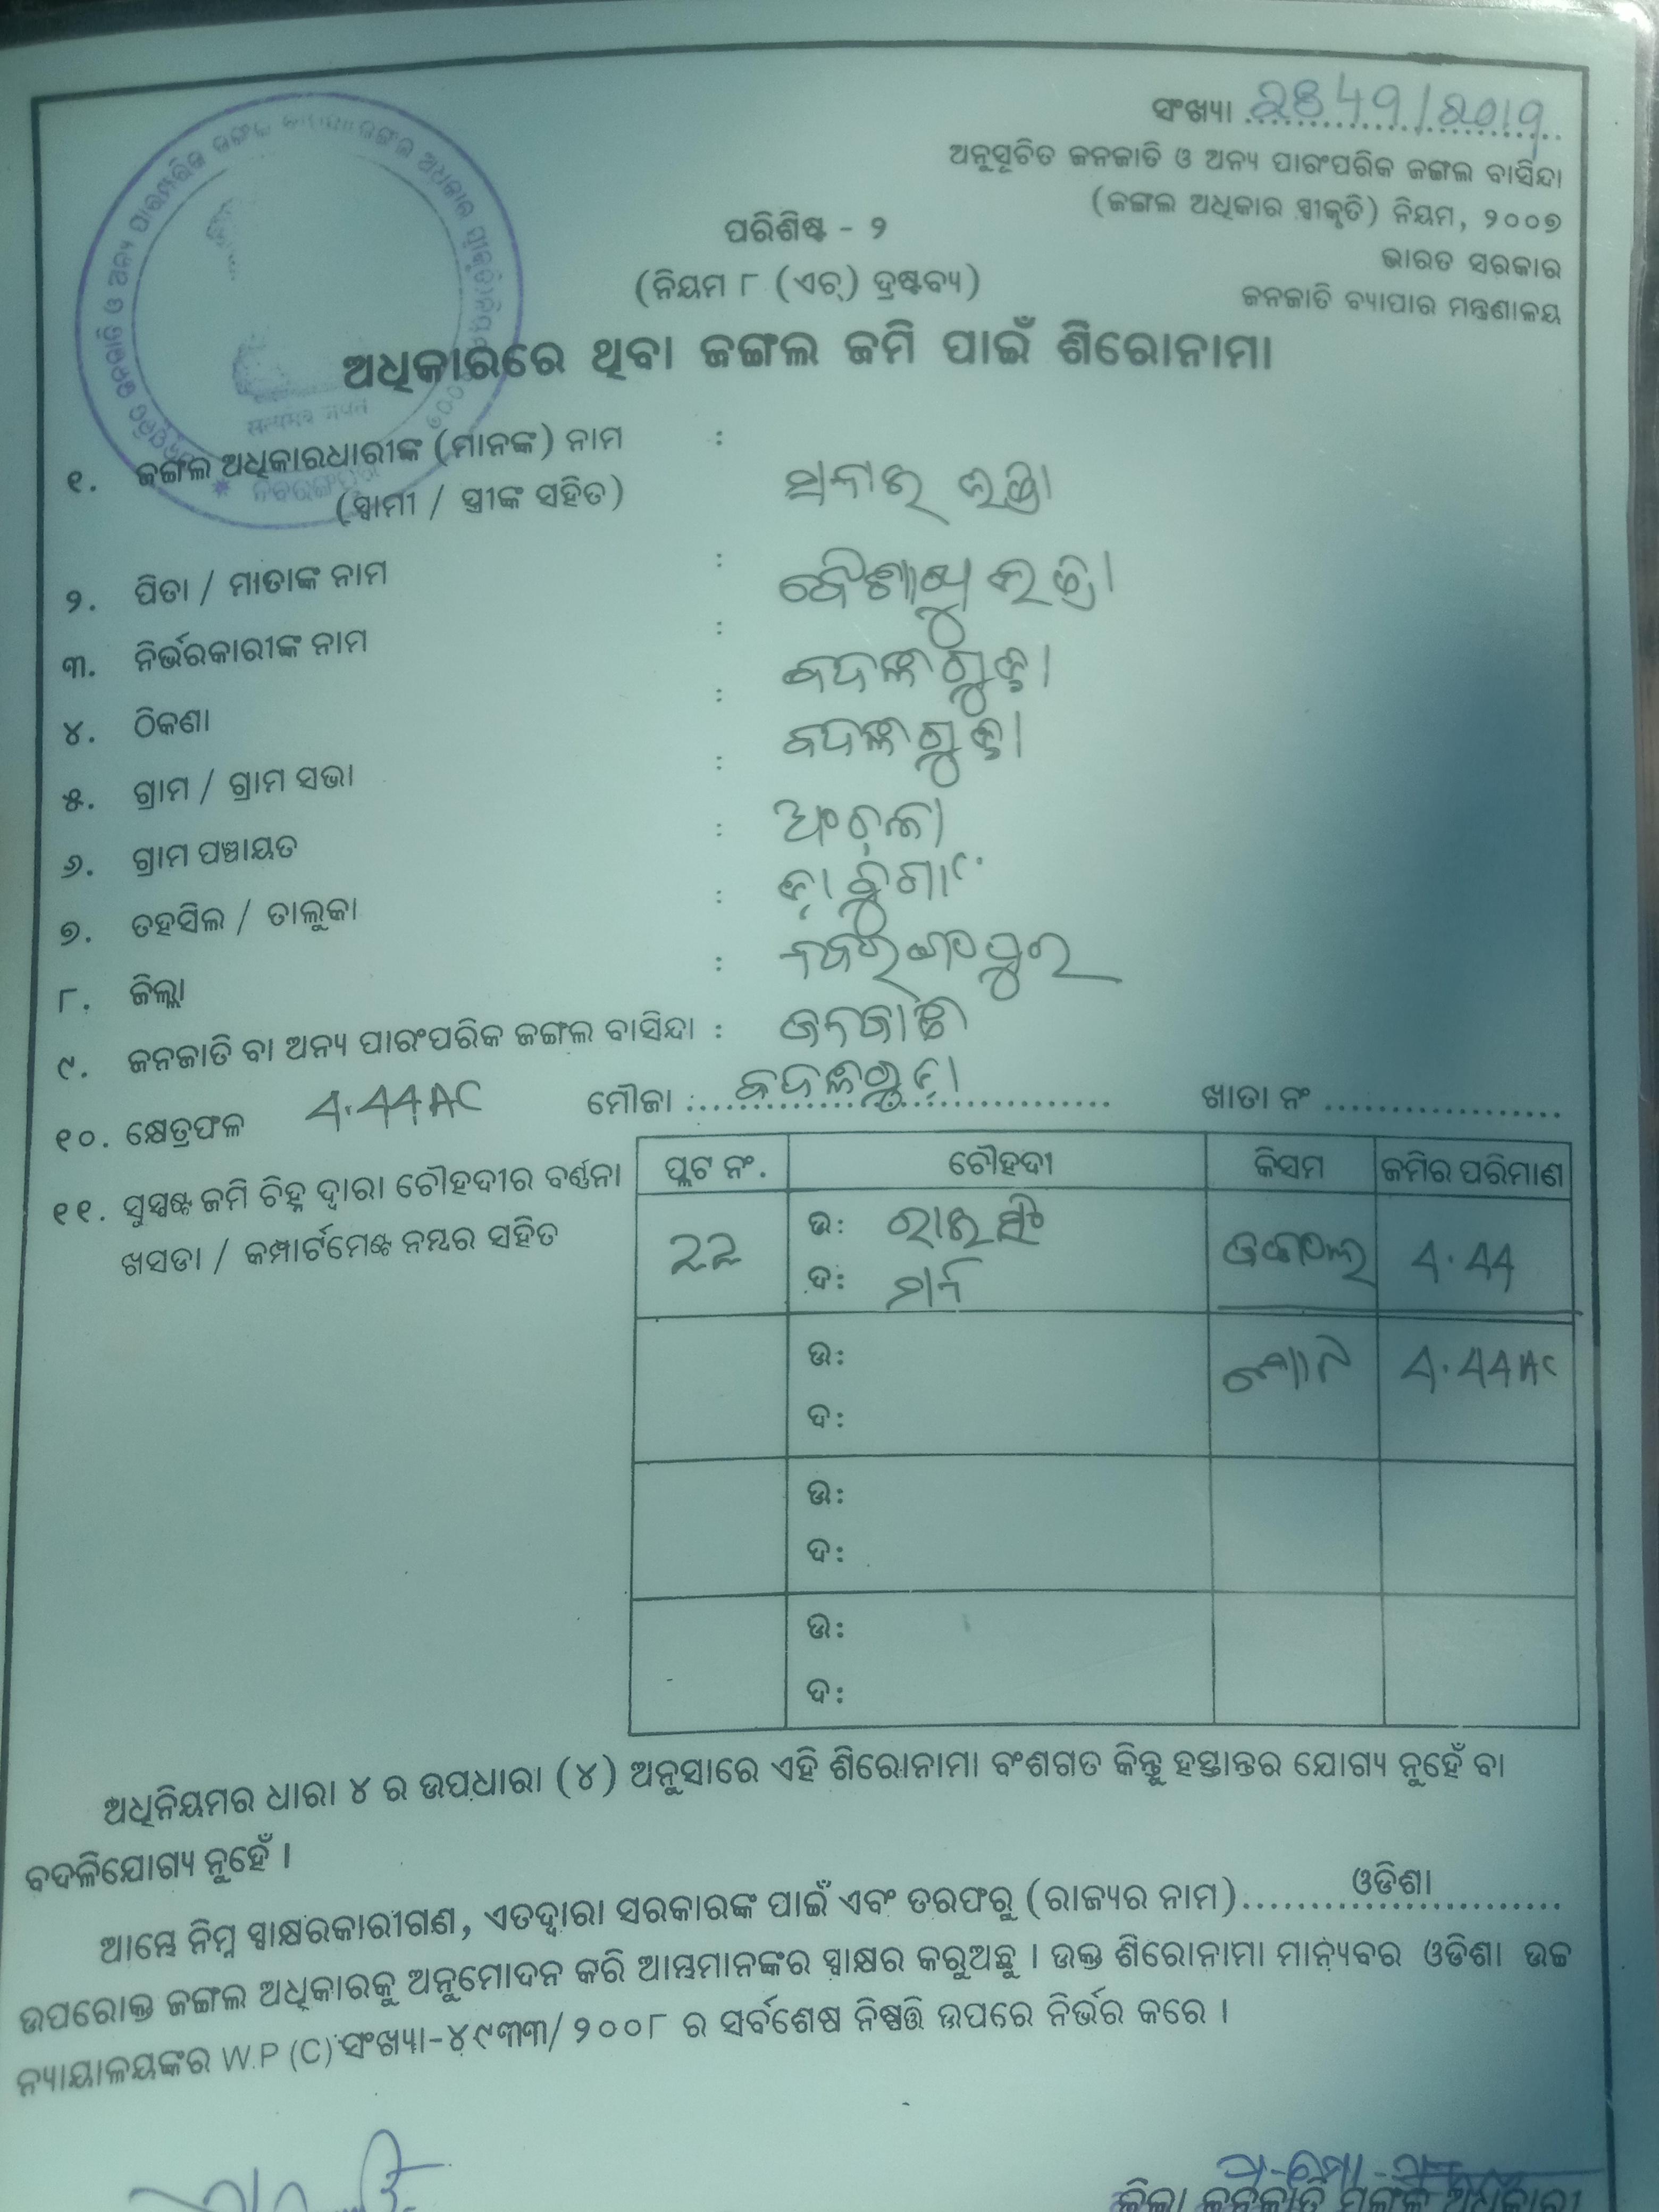 ସଂଖ୍ୟା
ଅନୁସୂଚିତ ଜନଜାତି ଓ ଅନ୍ୟ ପାରଂପରିକ ଜଙ୍ଗଲ ବାସିନ୍ଦା
(ଜଙ୍ଗଲ ଅଧିକାର ସ୍ୱୀକୃତି) ନିୟମ, ୨୦୦୭
ଭାରତ ସରକାର
ଜନଜାତି ବ୍ୟାପାର ମନ୍ତ୍ରଣାଳୟ
ପରିଶିଷ୍ଟ - ୨
(ନିୟମ ୮ (ଏଚ୍) ଦ୍ରଷ୍ଟବ୍ୟ)
ଅଧିକାରରେ ଥିବା ଜଙ୍ଗଲ ଜମି ପାଇଁ ଶିରୋନାମା
୧. ଜଙ୍ଗଲ ଅଧିକାରଧାରୀଙ୍କ (ମାନଙ୍କ) ନାମ :
(ସ୍ୱାମୀ / ସ୍ତ୍ରୀଙ୍କ ସହିତ)
୨. ପିତା / ମାତାଙ୍କ ନାମ :
୩. ନିର୍ଭରକାରୀଙ୍କ ନାମ :
୪. ଠିକଣା :
୫. ଗ୍ରାମ / ଗ୍ରାମ ସଭା :
୬. ଗ୍ରାମ ପଞ୍ଚାୟତ :
୭. ତହସିଲ / ତାଲୁକା :
୮. ଜିଲ୍ଲା : ନବରଙ୍ଗପୁର
୯. ଜନଜାତି ବା ଅନ୍ୟ ପାରଂପରିକ ଜଙ୍ଗଲ ବାସିନ୍ଦା : ଜନଜାତି
୧୦. କ୍ଷେତ୍ରଫଳ 4.44 AC ମୌଜା ଖାତା ନଂ
୧୧. ସୁସ୍ପଷ୍ଟ ଜମି ଚିହ୍ନ ଦ୍ୱାରା ଚୌହଦୀର ବର୍ଣ୍ଣନା
ଖସଡା / କମ୍ପାର୍ଟମେଣ୍ଟ ନମ୍ବର ସହିତ
ପ୍ଲଟ ନଂ. ଚୌହଦୀ କିସମ ଜମିର ପରିମାଣ
22 ଉ: ଜଙ୍ଗଲ 4.44
ଦ:
ଉ: 4.44 AC
ଦ:
ଉ:
ଦ:
ଉ:
ଦ:
ଅଧିନିୟମର ଧାରା ୪ ର ଉପଧାରା (୪) ଅନୁସାରେ ଏହି ଶିରୋନାମା ବଂଶଗତ କିନ୍ତୁ ହସ୍ତାନ୍ତର ଯୋଗ୍ୟ ନୁହେଁ ବା
ବଦଳିଯୋଗ୍ୟ ନୁହେଁ ।
ଆମ୍ଭେ ନିମ୍ନ ସ୍ୱାକ୍ଷରକାରୀଗଣ, ଏତଦ୍ୱାରା ସରକାରଙ୍କ ପାଇଁ ଏବଂ ତରଫରୁ (ରାଜ୍ୟର ନାମ) ଓଡିଶା
ଉପରୋକ୍ତ ଜଙ୍ଗଲ ଅଧିକାରକୁ ଅନୁମୋଦନ କରି ଆମ୍ଭମାନଙ୍କର ସ୍ୱାକ୍ଷର କରୁଅଛୁ । ଉକ୍ତ ଶିରୋନାମା ମାନ୍ୟବର ଓଡିଶା ଉଚ୍ଚ
ନ୍ୟାୟାଳୟଙ୍କର W.P (C) ସଂଖ୍ୟା-୪୯୩୩/ ୨୦୦୮ ର ସର୍ବଶେଷ ନିଷ୍ପତ୍ତି ଉପରେ ନିର୍ଭର କରେ ।
ଜିଲ୍ଲା ଜନଜାତି ମଙ୍ଗଳ ଅଧିକାରୀ